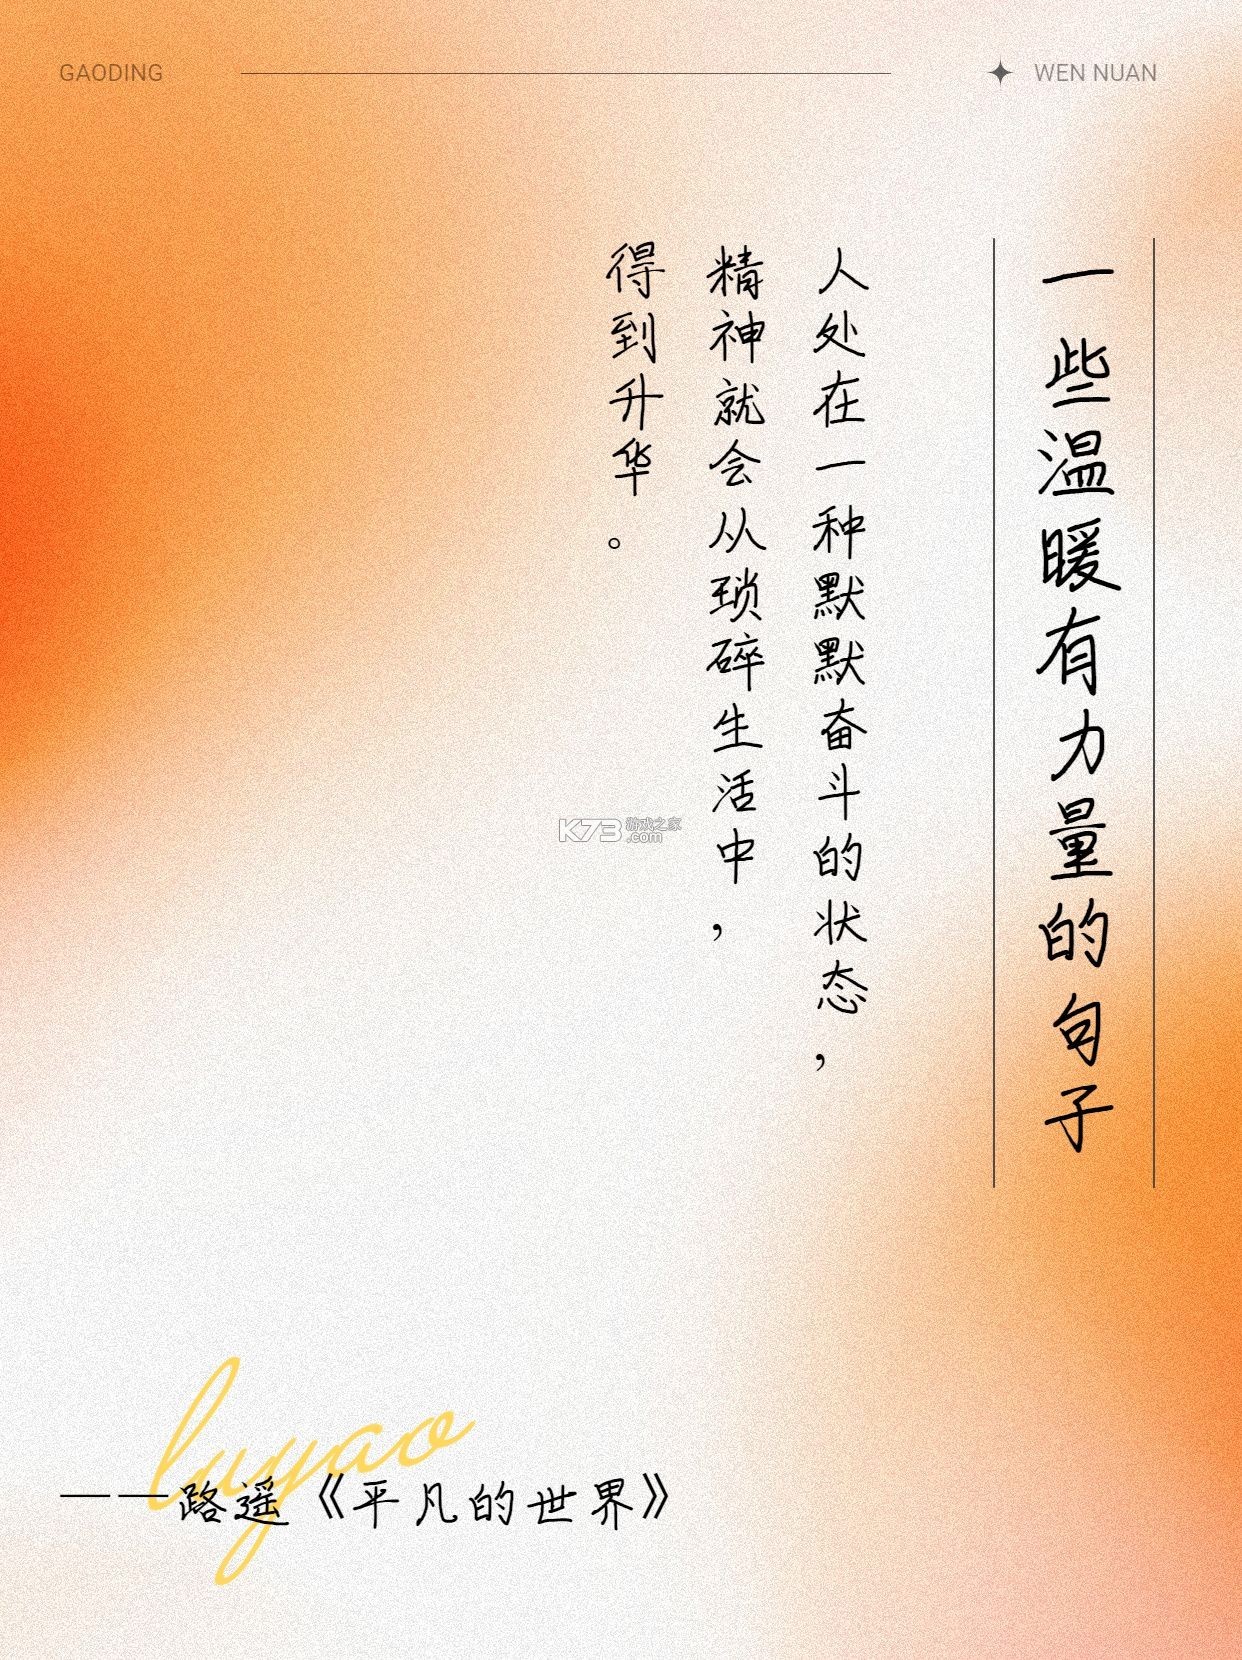 GAODING
WEN NUAN
一些温暖有力量的句子
人处在一种默默奋斗的状态，
精神就会从琐碎生活中，
得到升华。
K73 游戏之家
.com
luyao
——路遥《平凡的世界》